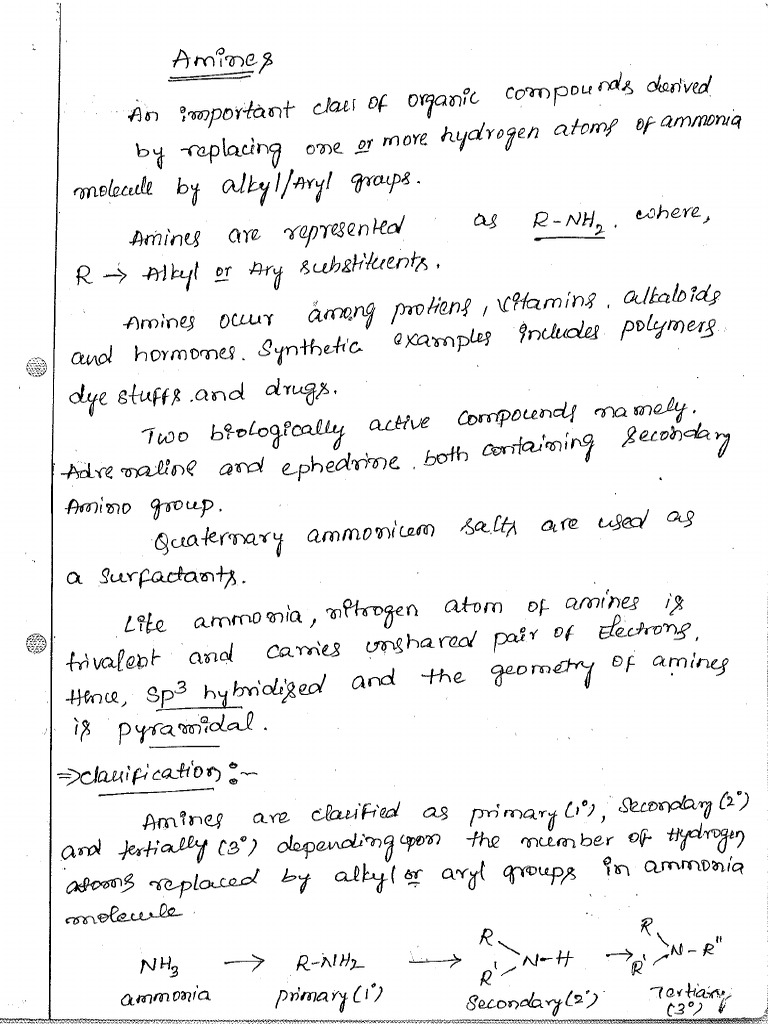 Amines
An important class of organic compounds derived
by replacing one or more hydrogen atoms of ammonia
molecule by alkyl/Aryl groups.
Amines are represented as R-NH₂. where,
R → Alkyl or Ary substituents.
Amines occur among protiens, vitamins. alkaloids
and hormones. Synthetic examples includes polymers
dye stuffs and drugs.
Two biologically active compounds namely.
Adrenaline and ephedrine. both containing secondary
Amino group.
Quaternary ammonicum salts are used as
a surfactants.
Like ammonia, nitrogen atom of amines is
trivalent and carries unshared pair of Electrons.
Hence, Sp³ hybridised and the geometry of amines
is pyramidal.
⇒ classification :-
Amines are classified as primary (1°), Secondary (2°)
and tertially (3°) depending upon the number of Hydrogen
atoms replaced by alkyl or aryl groups in ammonia
molecule
NH₃ → R-NH₂ → R R' N-H → R R' N-R"
ammonia primary (1°) Secondary (2°) Tertiary (3°)